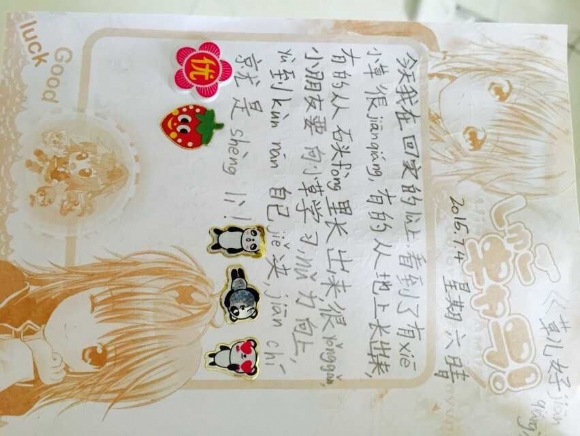 《草儿好jiān
qiáng》
2015.7.4 星期六 晴
今天我在回家的路上看到了有xiē
小草很jiānqiáng,有的从地上长出来,
有的从石头fèng里长出来很yǒnggǎn,
小朋友要向小草学习,nǔ力向上,
yù到kùn nán 自己jiě决,jiān chí
就是shèng lì!
优
Good
luck